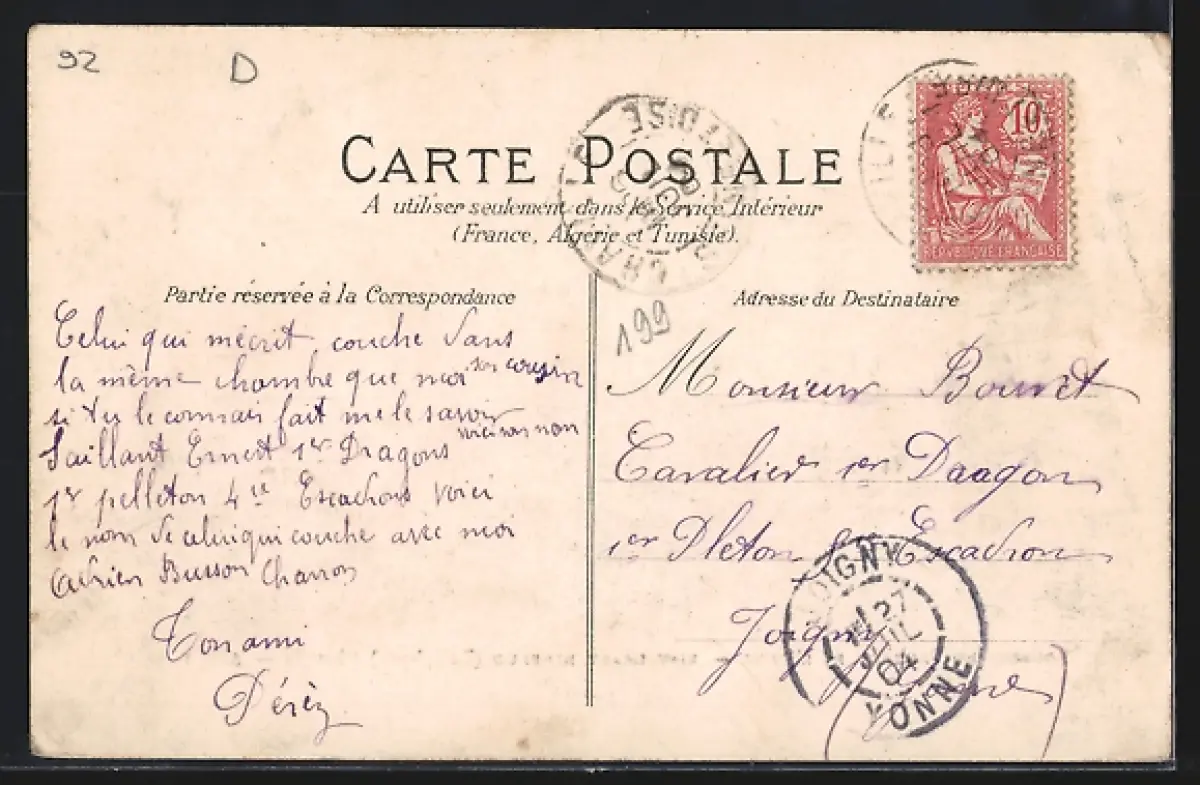 92
D
10
RÉPUBLIQUE FRANÇAISE
CARTE POSTALE
A utiliser seulement dans le Service Intérieur
(France, Algérie et Tunisie).
Partie réservée à la Correspondance
Celui qui mécrit couche dans
la même chambre que moi son cousin
si tu le connais fait me le savoir
voici son nom
Saillant Ernest 1er Dragons
1er pelleton 4me Escadrons voici
le nom de celui qui couche avec moi
Adrien Busson Charron
Ton ami
Pérèz
199
Adresse du Destinataire
Monsieur Bouvet
Cavalier 1er Daagon
1er Pleton Escadron
Joigny
JOIGNY
27
JUIL
04
YONNE